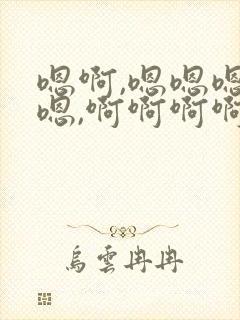 嗯啊,嗯嗯嗯
嗯,啊啊啊啊
烏雲冉冉